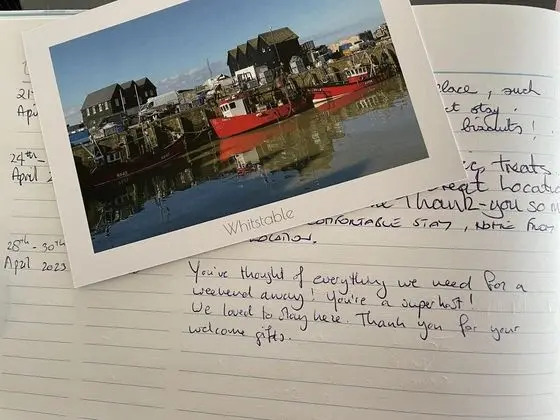 21
April
place, such
t stay.
biscuits!
24th
April 2
treats
Great Locatio
Thank-you so m
COMFORTABLE STAY,
LOCATION.
Whitstable
28th - 30th
April 2023
You've thought of everything we need for a
weekend away! You're a superhost!
We loved to stay here. Thank you for your
welcome gifts.